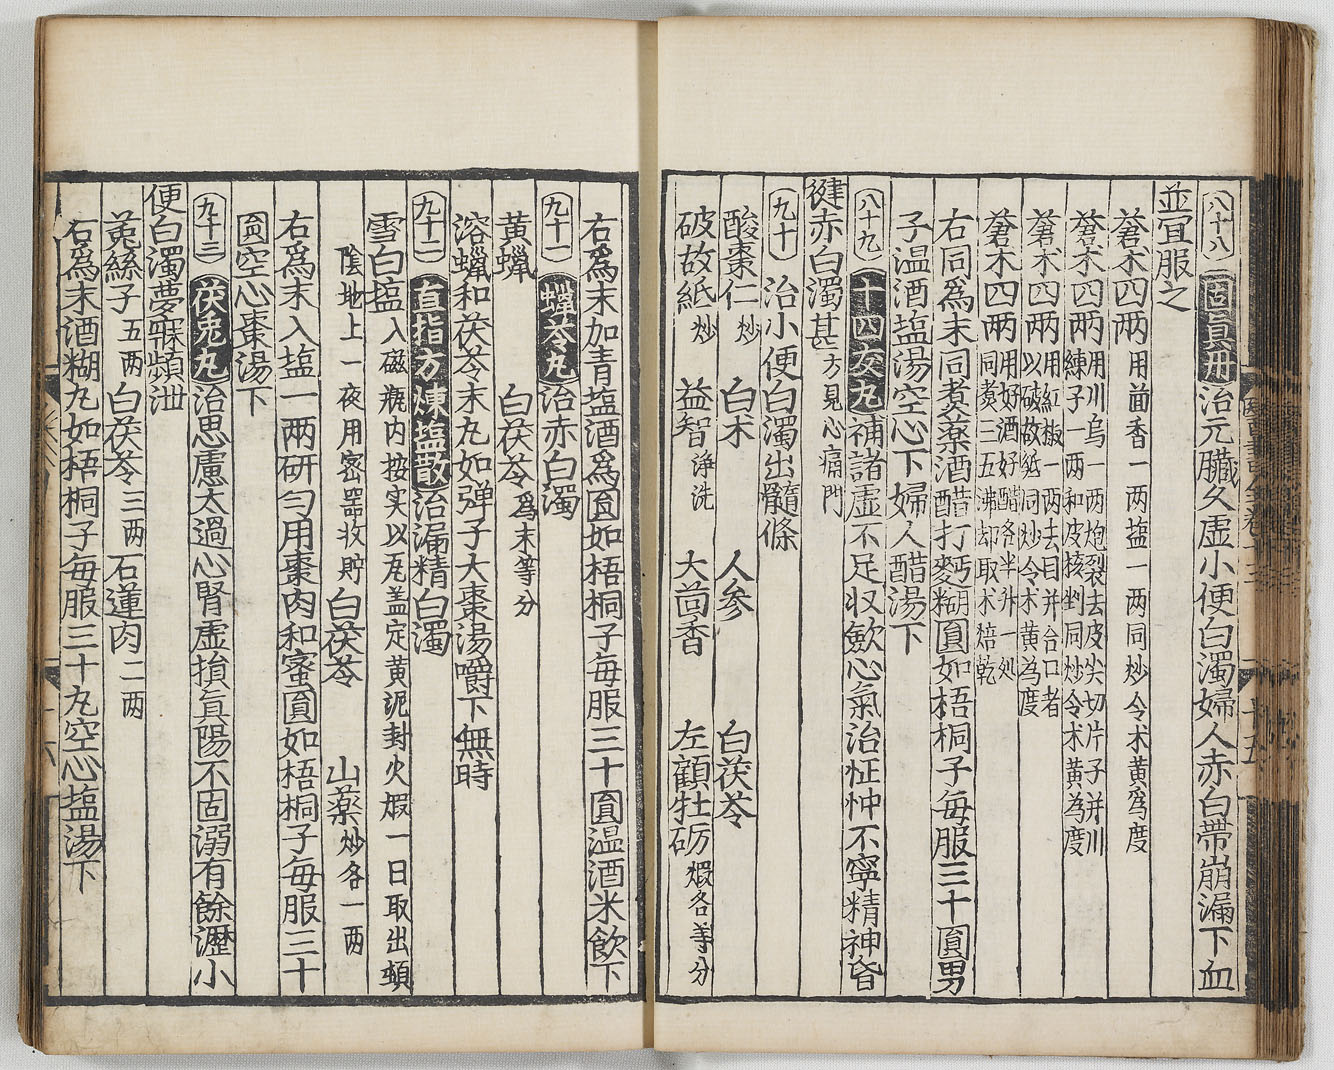 八十八 固眞丹 治元臟久虛小便白濁婦人赤白帶崩漏下血
並宜服之
蒼朮四兩 用茴香一两盐一两同炒令术黄爲度
蒼朮四两 用川乌一两炮裂去皮尖切片子并川
練子一两和皮核剉同炒令术黄为度
蒼朮四两 用紅椒一两去目并合口者
以破故紙同炒令术黄为度
蒼朮四两 用好酒好醋各半升一处
同煑三五沸却取术焙乾
右同爲末同煑藥酒醋打麪糊圓如梧桐子每服三十圓男
子温酒塩湯空心下婦人醋湯下
八十九 十四友丸 補諸虛不足収歛心氣治怔忡不寧精神昏
徤赤白濁甚 方見心痛門
九十 治小便白濁出髓條
酸棗仁炒 白朮 人參 白茯苓
破故紙炒 益智淨洗 大茴香 左顧牡砺煅各等分
右爲末加青塩酒爲圓如梧桐子每服三十圓温酒米飲下
九十一 蠟苓丸 治赤白濁
黄蠟 白茯苓爲末等分
溶蠟和茯苓末丸如弹子大棗湯嚼下無時
九十二 直指方煉塩散 治漏精白濁
雪白塩 入磁瓶内按实以瓦盖定黄泥封火煅一日取出頓
陰地上一夜用密器收貯 白茯苓 山藥炒各一两
右爲末入塩一两研匀用棗肉和蜜圓如梧桐子每服三十
圓空心棗湯下
九十三 茯兎丸 治思慮太過心腎虛損眞陽不固溺有餘瀝小
便白濁夢寐頻泄
莵絲子五两 白茯苓三两 石蓮肉二两
右爲末酒糊丸如梧桐子每服三十丸空心塩湯下